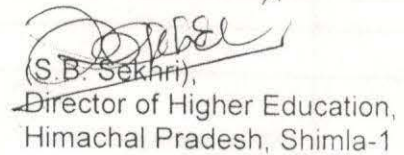 (S.B. Sekhri),
Director of Higher Education,
Himachal Pradesh, Shimla-1